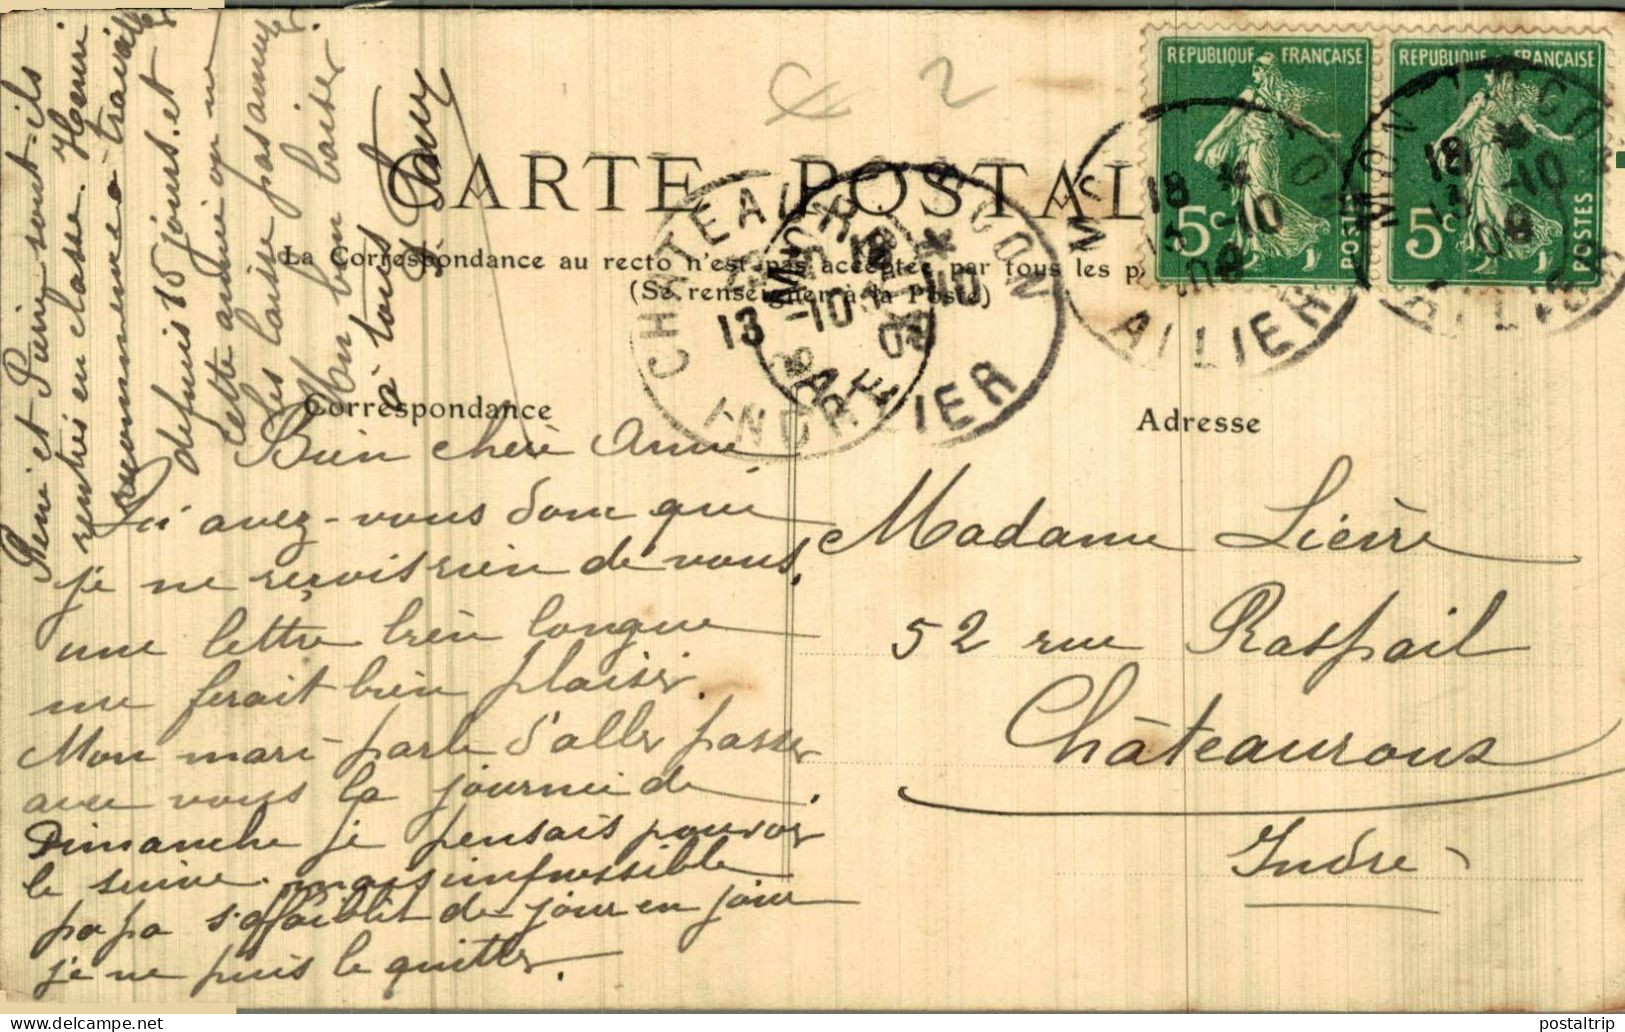 CARTE POSTALE
La Correspondance au recto n'est pas acceptée par tous les p
(Se renseigner à la Poste)
Correspondance
Adresse
REPUBLIQUE FRANÇAISE
5c
POSTES
REPUBLIQUE FRANÇAISE
5c
POSTES
ALLIER
CHATEAUROUX
13 -10
08
INDRE
2
Bien chère Anne
avez-vous donc que
je ne reçois rien de vous.
une lettre bien longue
me ferait bien plaisir.
Mon mari parle d'aller passer
avec vous la journée de
Dimanche je pensais pouvoir
le suivre. mais impossible
papa s'affaiblit de jour en jour
je ne puis le quitter.
René et Pierre sont-ils
rentrés en classe. Henri
recommence à travailler
depuis 15 jours. et
cette année on ne
les laisse pas amuser.
Mon bon baiser
à tous
Madame Lièvre
52 rue Raspail
Châteauroux
Indre
postaltrip